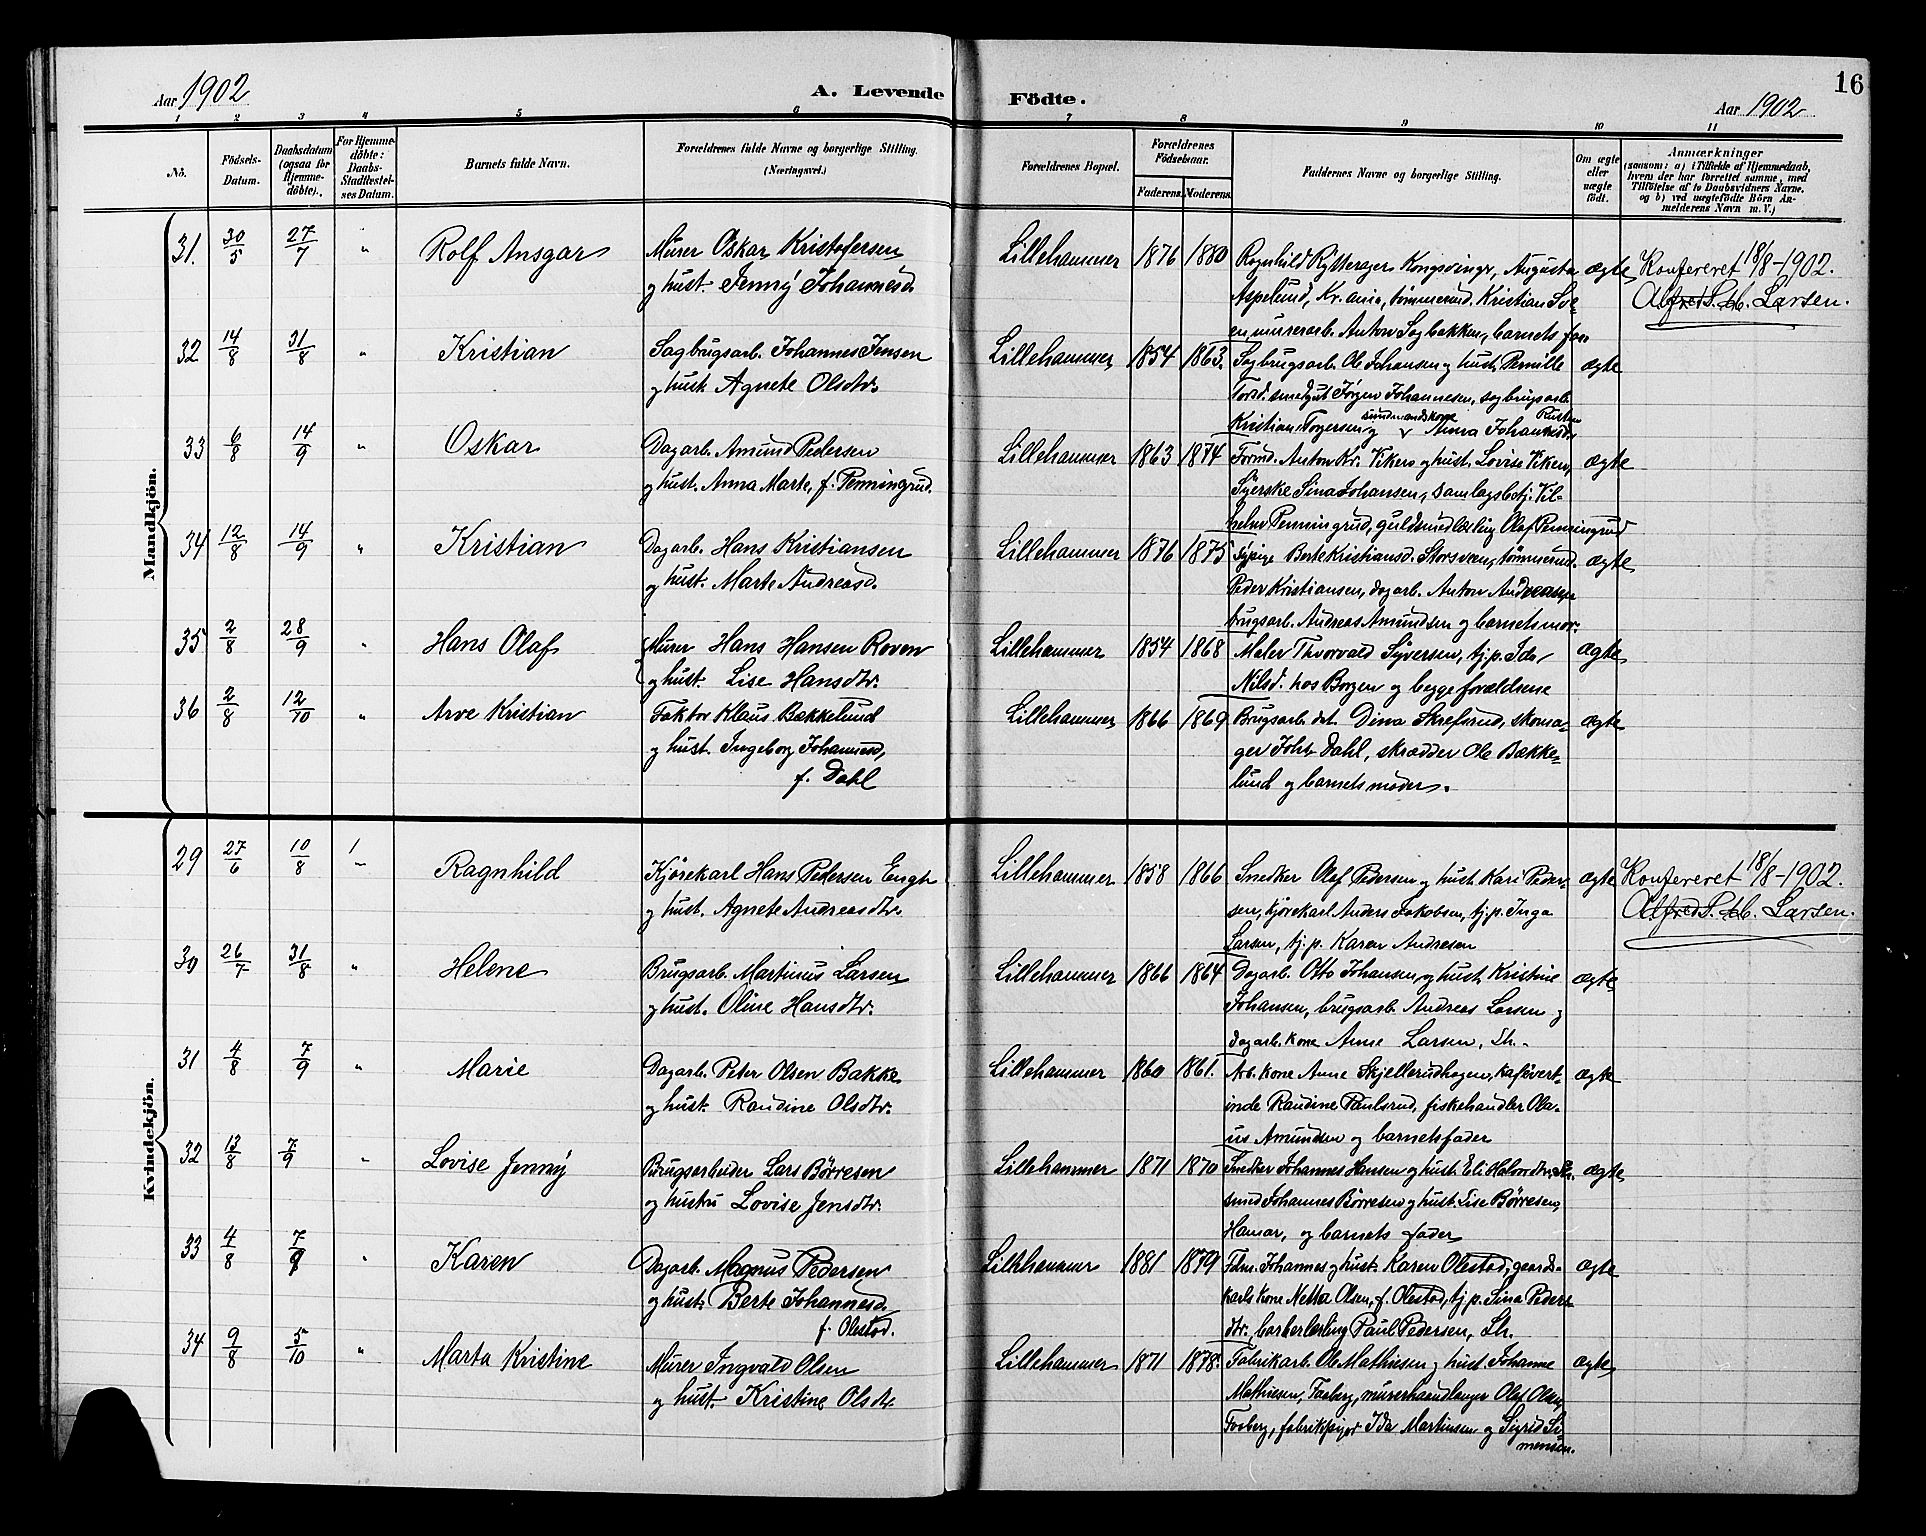 16
Aar 1902
A. Levende Födte.
Aar 1902
1 2 3 4 5 6 7 8 9 10 11
No.
Födsels-Datum.
Daabsdatum (ogsaa for Hjemme-döbte).
For Hjemme-döbte: Daabs-Stadfæstel-ses Datum.
Barnets fulde Navn.
Forældrenes fulde Navne og borgerlige Stilling.
(Næringsvei.)
Forældrenes Bopæl.
Forældrenes Födselsaar.
Faderens. Moderens.
Faddernes Navne og borgerlige Stilling.
Om ægte eller uægte födt.
Anmærkninger
(saasom: a) i Tilfælde af Hjemmedaab,
hvem der har forrettet samme, med
Tilföielse af to Daabsvidners Navne.
og b) ved uægtefödte Börn An-
melderens Navn m. V.)
Mandkjön.
31. 30/5 27/7 " Rolf Ansgar Murer Oskar Kristofersen Lillehammer 1876 1880 Ragnhild Rytterager Kongsvinger, Augusta ægte Konfereret 18/8-1902.
og hust. Jenny Johannesd. Aspelund, Kr.ania, tømmermd. Kristian Sve- Alfred S. Larsen.
en murerarb. Anton Sagbakken, barnets far
32 14/8 31/8 " Kristian Sagbrugsarb. Johannes Jensen Lillehammer 1854 1863. Sagbrugsarb. Ole Johansen og hust. Pernille ægte
og hust. Agnete Olsdtr. Torsd. smedgut Jörgen Johannesen, sagbrugsarb.
Kristian Torgersen og Anna Johannesd.
33 6/8 14/9 " Oskar Dagarb. Amund Pedersen Lillehammer 1863 1874 Formd. Anton Kr. Viken og hust. Lovise Viken, ægte
og hust. Anna Marte, f. Penningrud. Syerske Sina Johansen, samlagsbetj. Vil-
helm Penningrud, guldsmedlærling Olaf Penningrud
34 12/8 14/9 " Kristian Dagarb. Hans Kristiansen Lillehammer 1876 1875 Sypige Berte Kristiansd. Storsveen, tømmermd. ægte
og hust. Marte Andreasd. Peder Kristiansen, dagarb. Anton Andreassen
brugsarb. Andreas Amundsen og barnets mor.
35 2/8 28/9 " Hans Olaf Murer Hans Hansen Roven Lillehammer 1854 1868 Maler Thorvald Syversen, tj.p. Ida ægte
og hust. Lise Hansdtr. Nilsd. hos Borgen og begge forældrene
36 2/8 12/10 " Arve Kristian Faktor Klaus Bækkelund Lillehammer 1866 1869 Brugsarb. dat. Dina Skrefsrud, skoma- ægte
og hust. Ingeborg Johannesd., ger Johs Dahl, skrædder Ole Bække-
f. Dahl lund og barnets moder.
Kvindekjön.
29 27/6 10/8 " Ragnhild Kjørekarl Hans Pedersen Engh Lillehammer 1858 1866 Snedker Olaf Pedersen og hust. Kari Peder- ægte Konfereret 18/8-1902.
og hust. Agnete Andreasdtr. sen, kjørekarl Anders Jakobsen, tj.p. Inga Alfred S. Larsen.
Larsen, tj.p. Karen Andresen
30 26/7 31/8 " Helene Brugsarb. Martinus Larsen Lillehammer 1866 1864 Dagarb. Otto Johansen og hust. Kristine ægte
og hust. Oline Hansdtr. Johansen, brugsarb. Andreas Larsen og
dagarb. kone Anne Larsen, Lh.
31 4/8 7/9 " Marie Dagarb. Peter Olsen Bakke Lillehammer 1860 1861. Arb. kone Anne Skjellerudhagen, kafévert- ægte
og hust. Randine Olsdtr. inde Randine Paulsrud, fiskehandler Ola-
us Amundsen og barnets fader
32 13/8 7/9 " Lovise Jenny Brugsarbeider Lars Börresen Lillehammer 1871 1870 Snedker Johannes Hansen og hust. Eli Halvordtr., ægte
og hustru Lovise Jensdtr. smed Johannes Börresen og hust. Lise Börresen,
Hamar, og barnets fader
33 4/8 7/9 " Karen Dagarb. Magnus Pedersen Lillehammer 1881 1879 Fdm. Johannes og hust. Karen Olestad, gaards- ægte
og hust. Berte Johannesd. karls kone Netta Olsen, f. Olestad, tj.p. Sina Peders-
f. Olestad. dtr., barberlærling Paul Pedersen, Lh.
34 9/8 5/10 " Marta Kristine Murer Ingvald Olsen Lillehammer 1871 1878. Fabrikarb. Ole Mathiesen og hust. Johanne ægte
og hust. Kristine Olsdtr. Mathiesen, Faaberg, murerhaandlanger Olaf Olsen
Faaberg, fabrikpiger Ida Martinsen og Sigrid Si-
mensen.